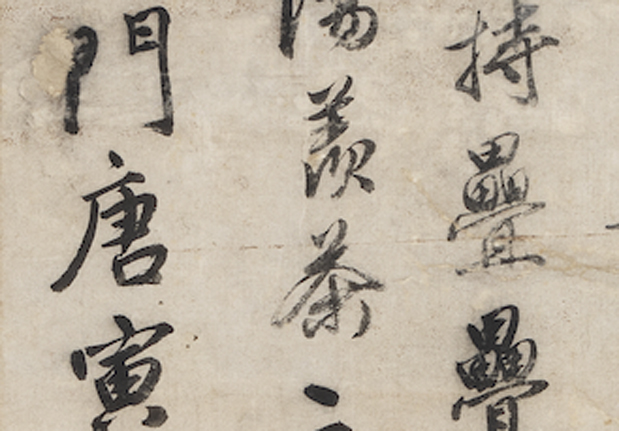 持疊疊
陽羨茶
門唐寅